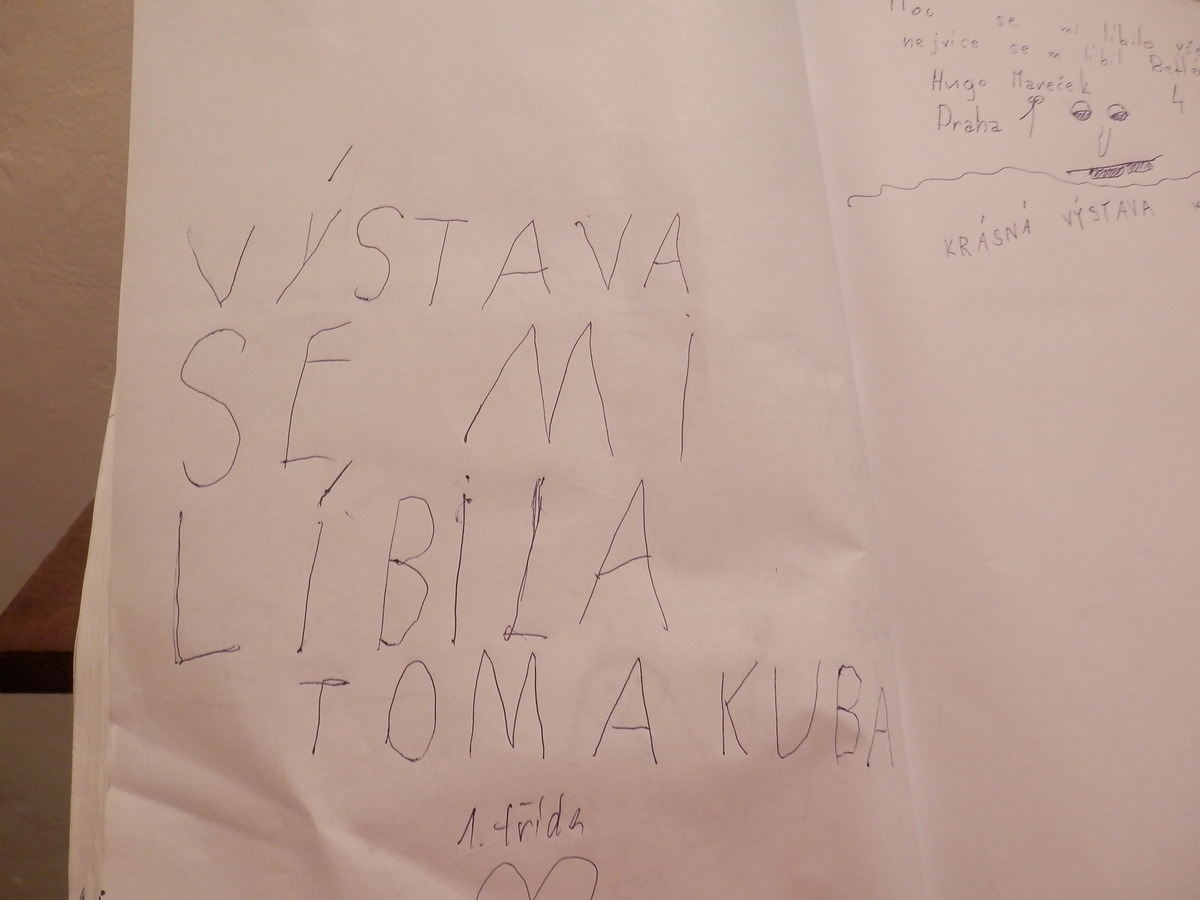 VÝSTAVA
SE MI
LÍBILA
TOM A KUBA
1. třída
Moc se mi líbilo
nejvíce se mi líbil
Hugo Mareček
4
Draha
KRÁSNÁ VÝSTAVA